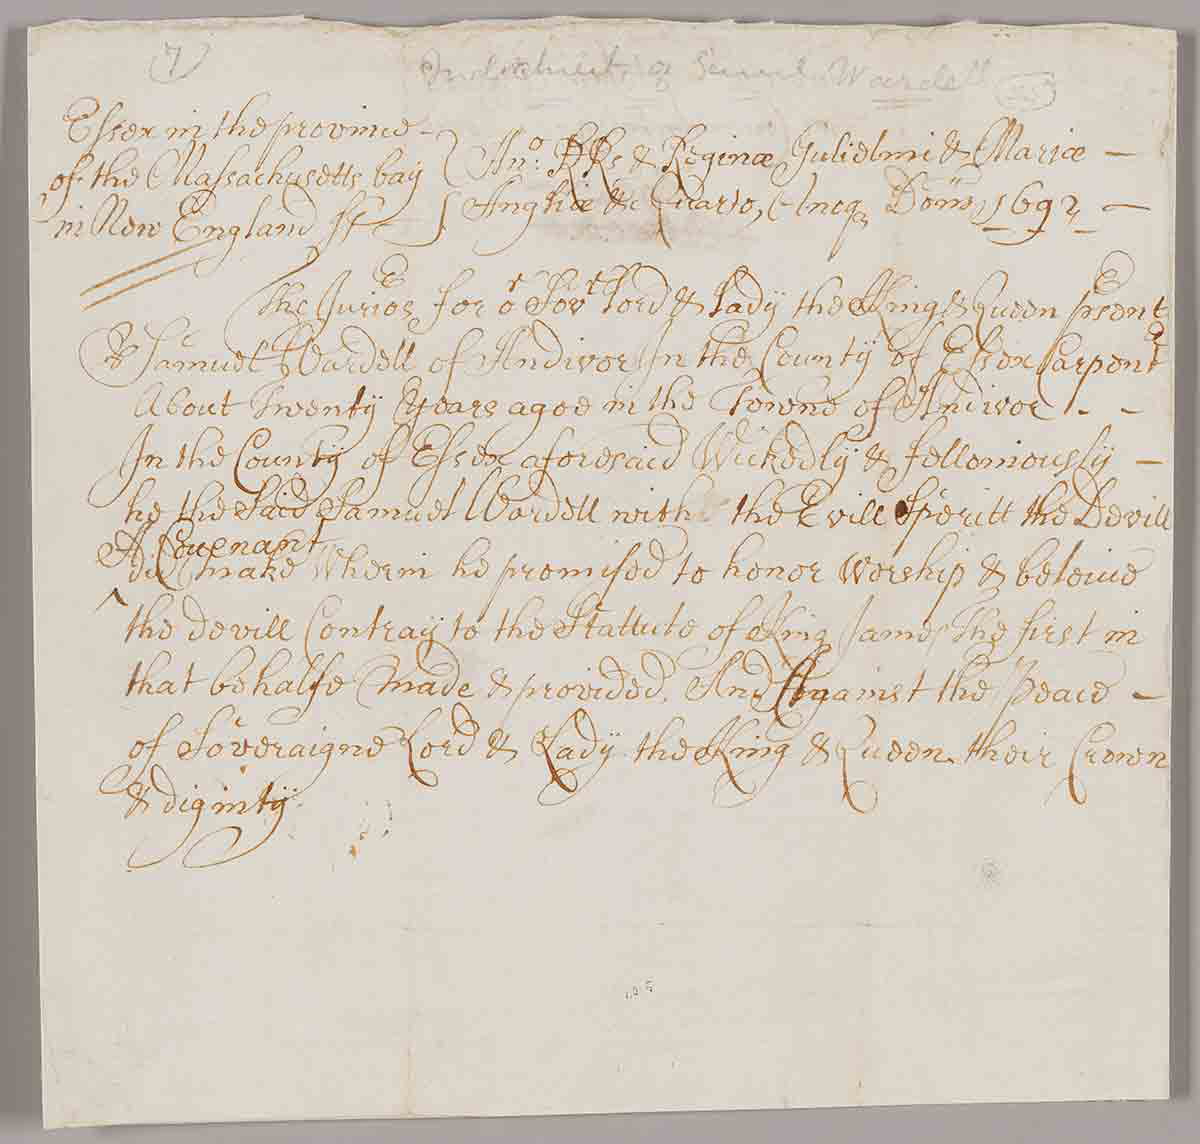 7
Indictment of Samuel Wardell
Essex in the province
of the Massachusetts bay
in New England ss
Ano. RRs & Reginæ Gulielmi & Mariæ
Angliæ &c Quarto, Anoq Dom 1692
The Juriors for or Sovt Lord & Lady the King & Queen psent
Samuel Wardell of Andivor In the County of Essex Carpentr
About Twenty Years agoe in the Towne of Andivor - -
In the County of Essex aforesaid Wickedly & felloniously
he the Said Samuel Wardell with the Evill Speritt the Devill
A Covenant
did make Wherin he promised to honor Worship & beleive
the devill Contray to the Stattute of King James the first in
that behalfe made & provided, And Against the Peace
of Soveraigne Lord & Lady the King & Queen their Crown
& dignity.